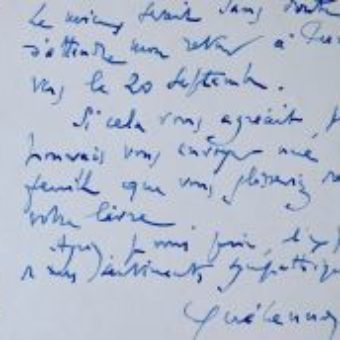 Le mieux serait sans doute
d'attendre mon retour à
vers le 20 septembre.
Si cela vous agréait, je
pourrais vous envoyer une
feuille que vous glisseriez
votre livre
Agréez je vous prie, l'
sentiments sympathiques